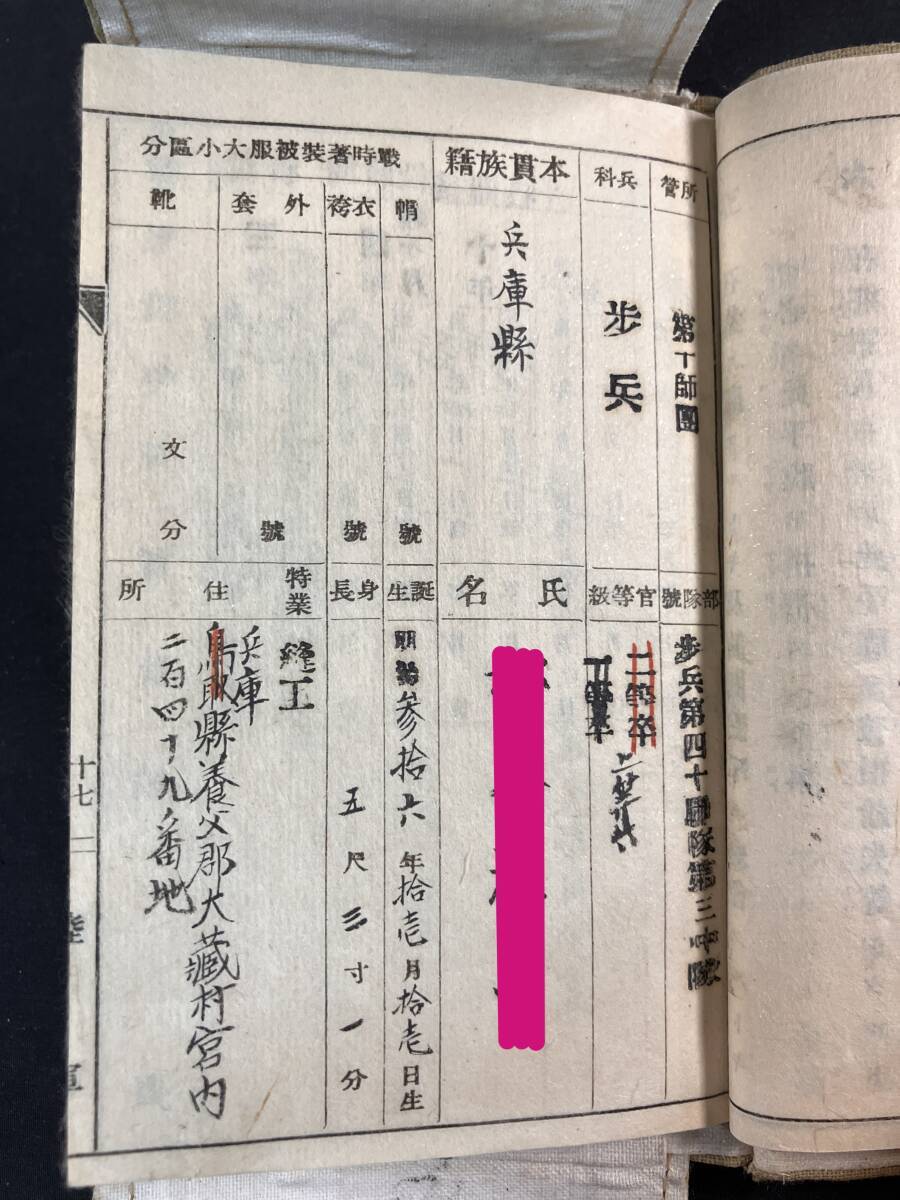 所管
第十師團
兵科
步兵
本貫族籍
兵庫縣
戰時著裝被服大小區分
帽
號
衣袴
號
外套
號
靴
文
分
部隊號
步兵第四十聯隊第三中隊
官等級
二等卒
一等卒
氏名
誕生
明治參拾六年拾壱月拾壱日生
身長
五尺三寸一分
特業
縫工
住所
兵庫
鳥取縣養父郡大藏村宮内
二百四十九番地
十七
陸
軍